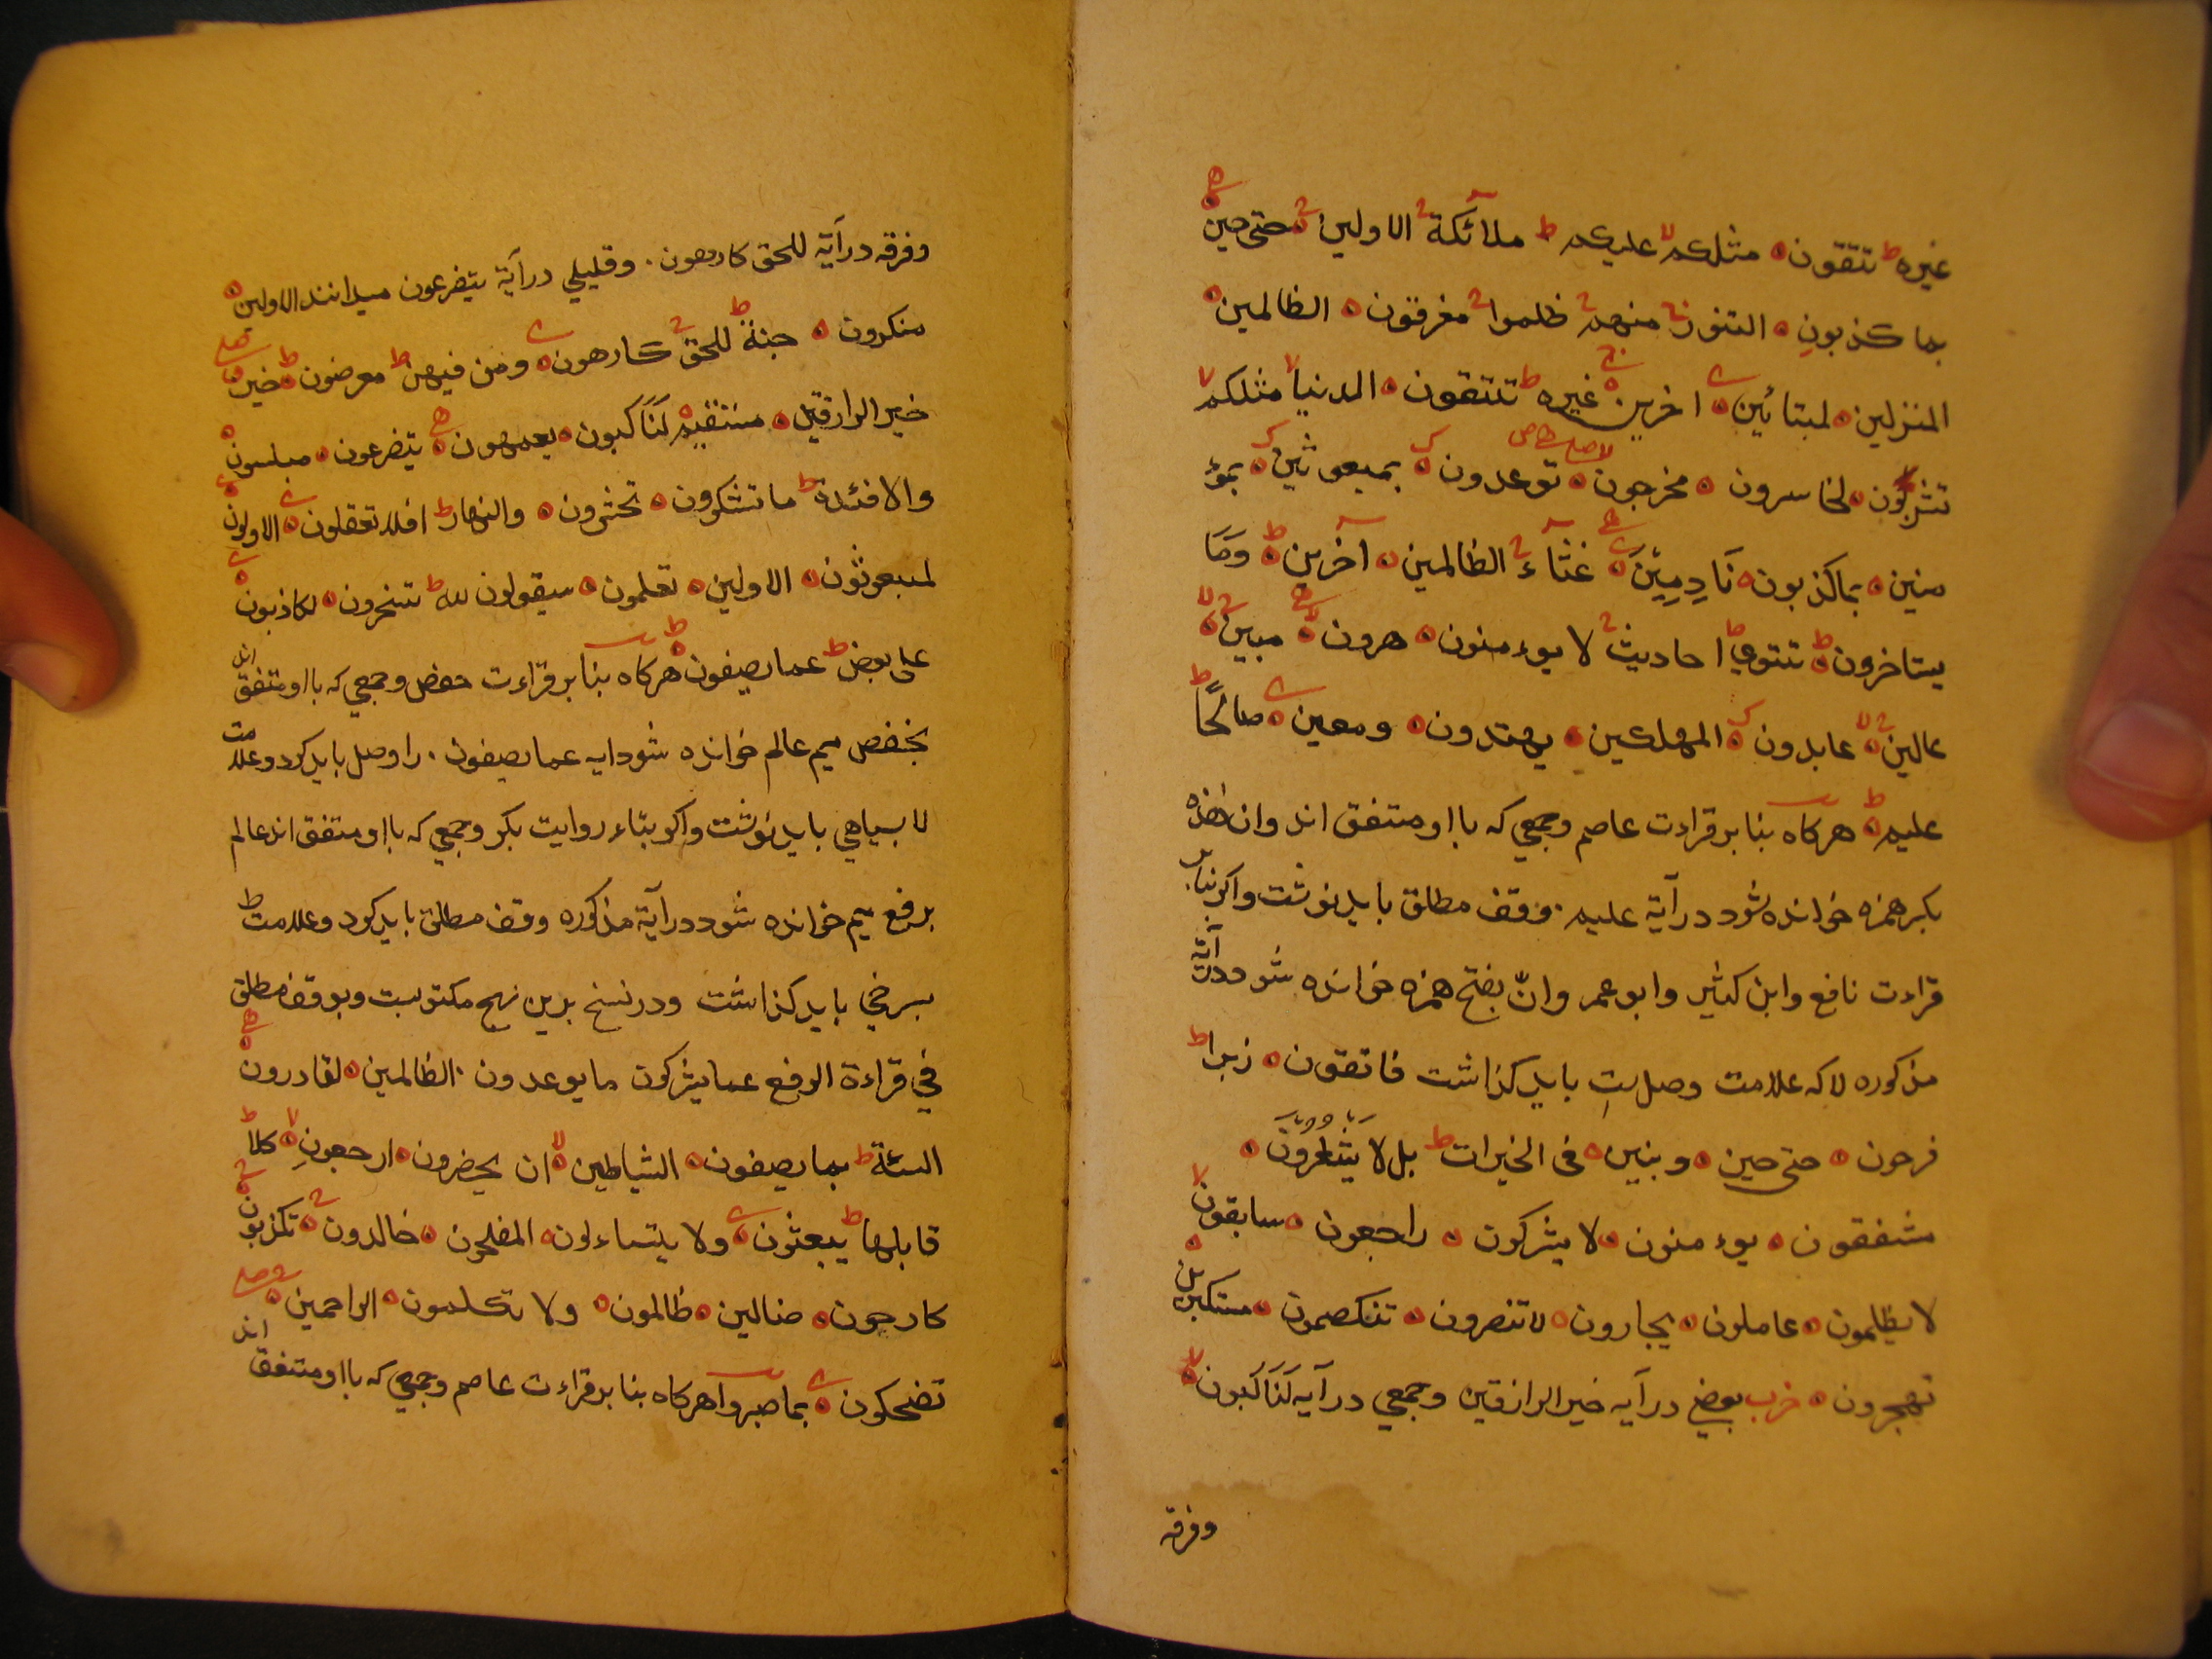 غيره ط تتقون مثلكم لا عليكم ط ملآئكة الاولين حتى حين
بما كذبونِ التنور منهم ظلموا مغرقون الظالمين
المنزلين لمبتائين اخرين غيره ط تتقون الدنيا مثلكم
تشربون لخاسرون مخرجون توعدون بمبعوثين بمؤ
منين بماكذبون نَادِمِيْنَ غثآء الظالمين آخرين ط وَمَا
يستاخرون ط تتوي احاديث لا يوءمنون هرون مبين
عالين عابدون المهلكين يهتدون ومعين صالحًا ط
عليم ط هركاه بنا بر قراءت عاصم وجمعي كه بااو متفق اند وان هذه
بكسر همزه خوانده شود در آية عليم . وقف مطلق بايد نوشت واكر بنابر
قراءت نافع وابن كثير وابو عمر وانّ بفتح همزه خوانده شود در آية
مذكوره لا كه علامت وصل ست بايد كذاشت فاتقون زبرا ط
فرحون حتى حين وبنين فى الخيرات ط بل لا يَشعُرُونَ
مشفقون يوءمنون لا يشركون راجعون سابقون
لا يظلمون عاملون يجارون لا تنصرون تنكصون مستكبرين
تهجرون حزب بعضي در آيه خير الرازقين وجمعي در آيه لَنَاكبون
وفرقه
وفرقه در آية للحق كارهون . وقليلي در آية يتضرعون ميدانند الاولين
منكرون جنة ط للحق كارهون ومن فيهن ط معرضون ط خير
خير الرازقين مستقيم لَنَاكبون يعمهون يتضرعون مبلسون
والافئدة ط ما تشكرون تحشرون والنهار ط افلا تعقلون الاولون
لمبعوثون الاولين تعلمون سيقولون لله ط تسحرون لكاذبون
على بعض ط عما يصفون ط هركاه بنا بر قراءت حفص وجمعي كه بااو متفق اند
بخفض ميم عالم خوانده شود ايه عما يصفون . را وصل بايد كرد وعلامت
لا بسياهي بايد نوشت واكر بناء روايت بكر وجمعي كه بااو متفق اند عالم
برفع ميم خوانده شود در آية مذكوره وقف مطلق بايد كرد وعلامت ط
بسرخي بايد كذاشت ودر نسخ بدين نهج مكتوبست وبوقف مطلق
في قراءة الرفع عما يشركون ما يوعدون . الظالمين لقادرون
السئة ط بما يصفون الشياطين لا ان يحضرون ارجعونِ لا كلا ط
قايلها ط يبعثون ولا يتساءلون المفلحون خالدون تكذبون
كالحون ضالين ظالمون ولا تكلمون الراحمين
تضحكون بما صبروا هركاه بنا بر قراءت عاصم وجمعي كه بااو متفق اند